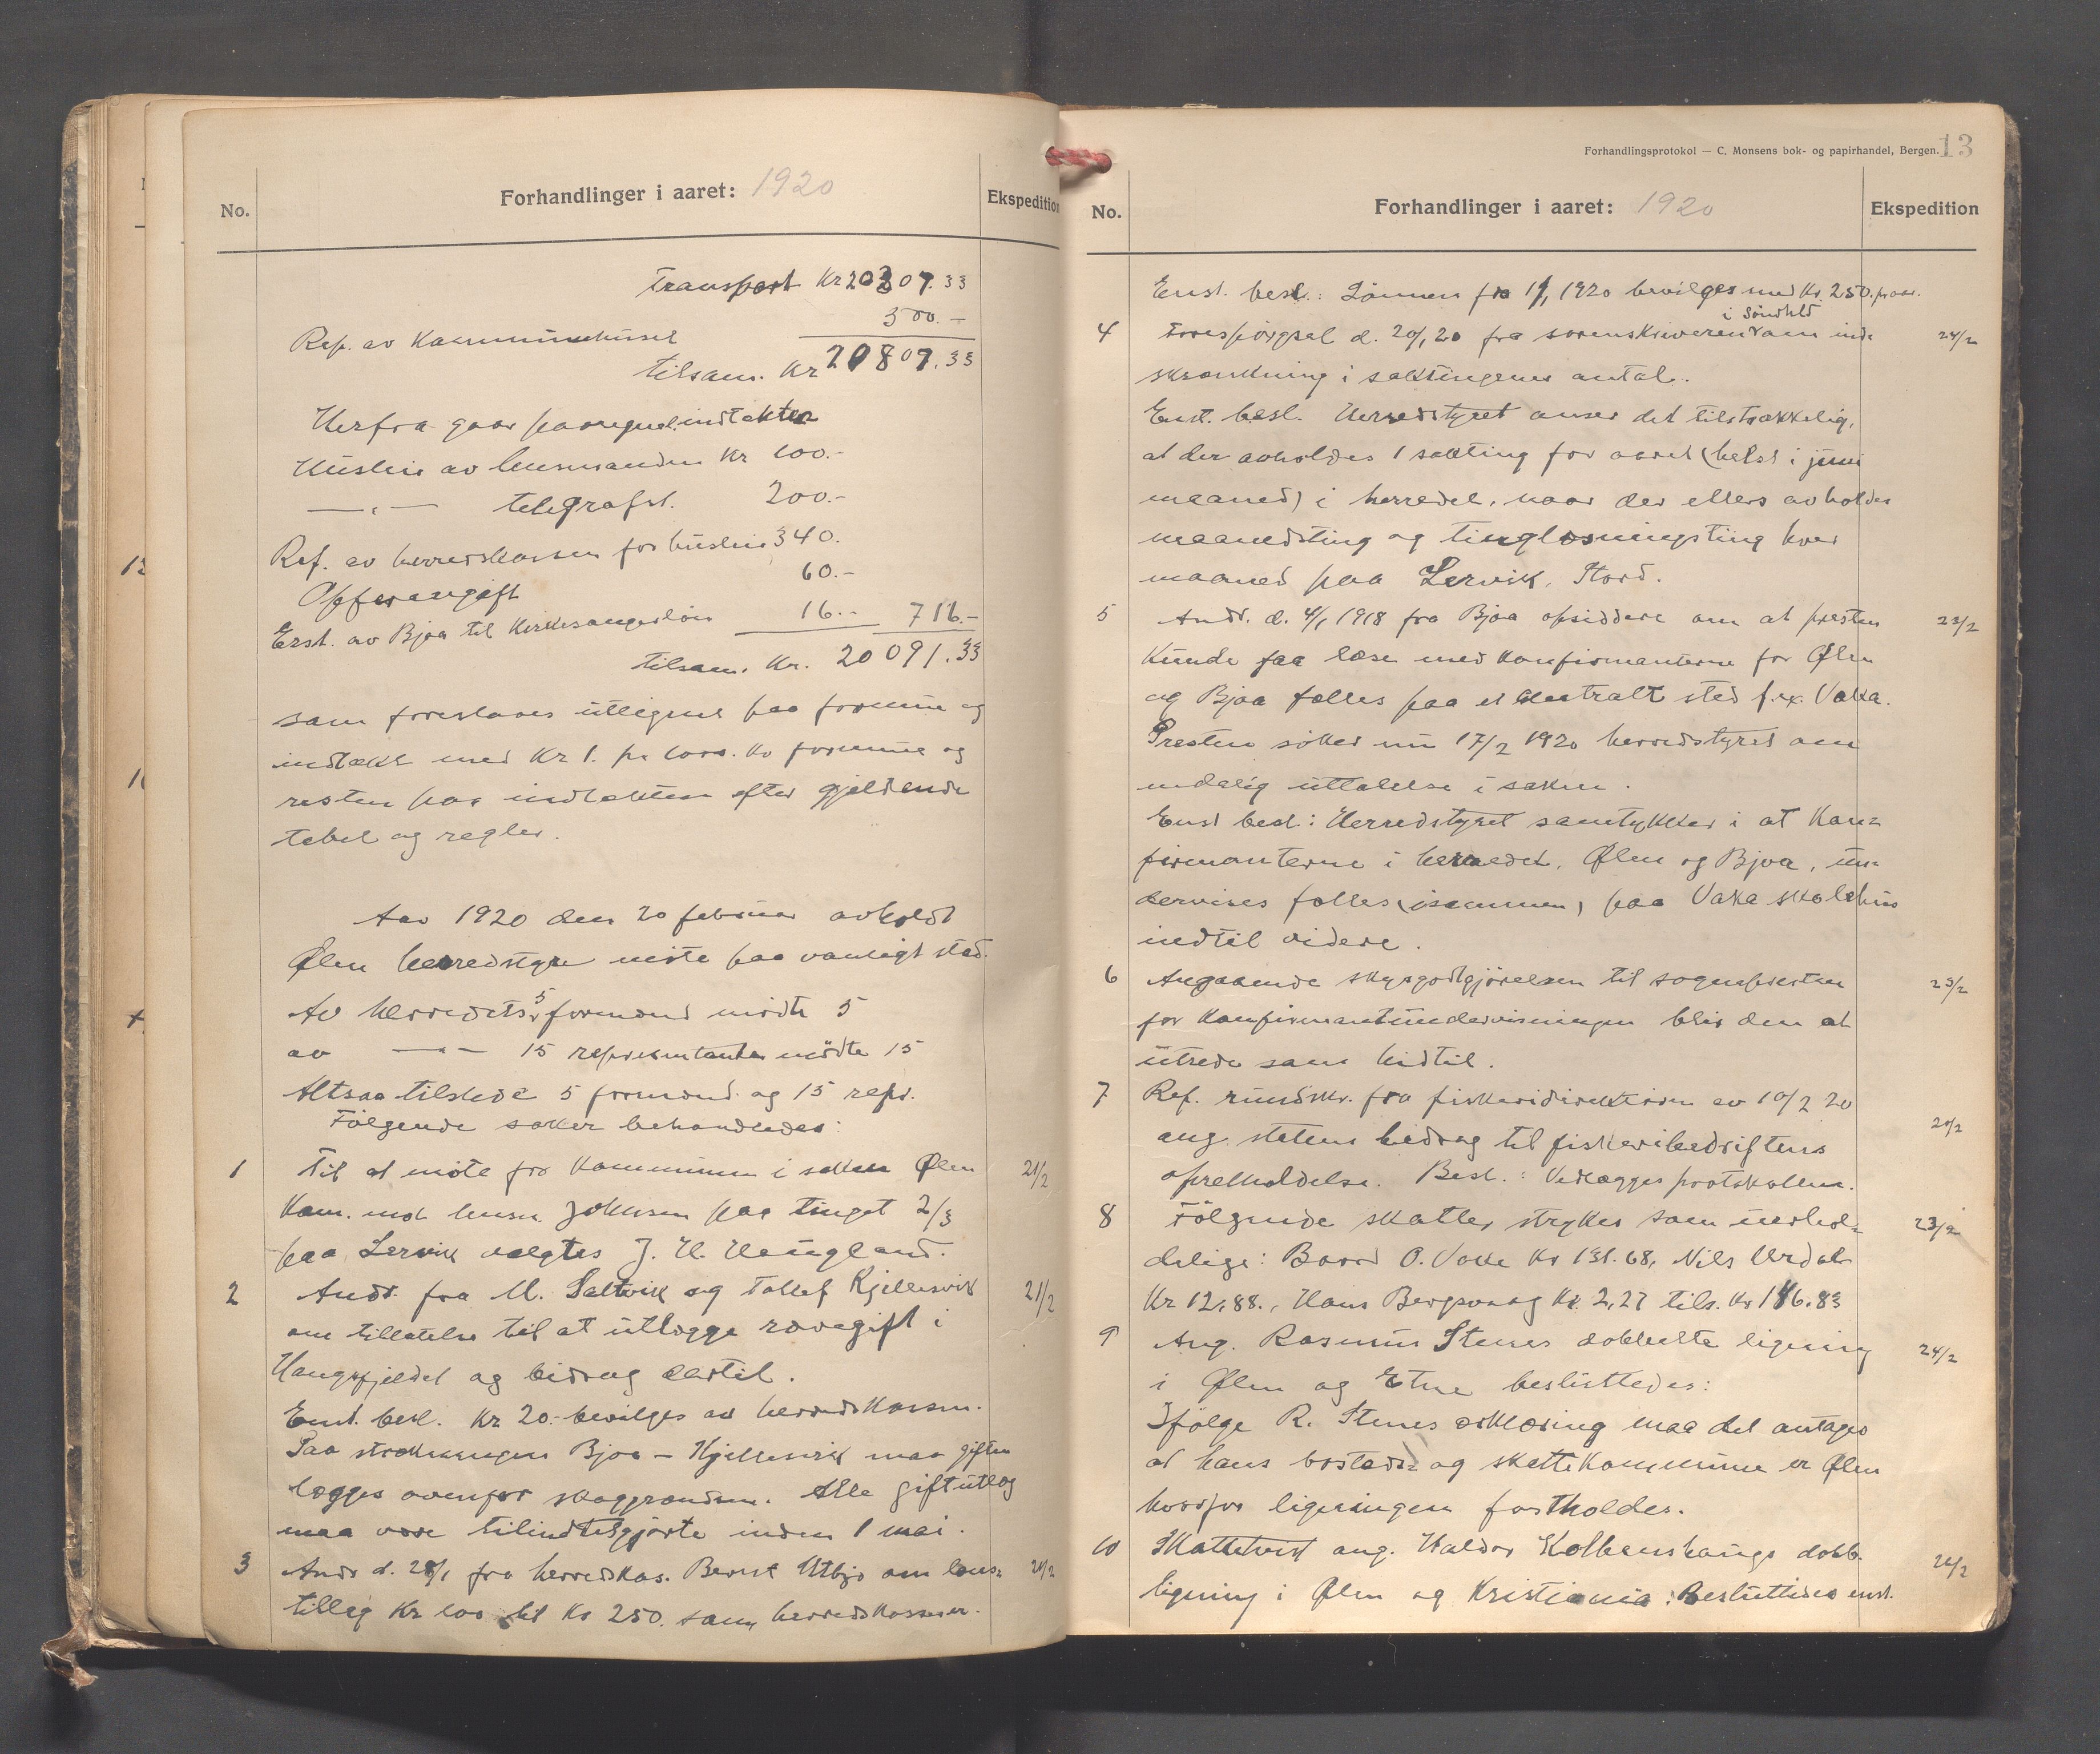 Forhandlinger i aaret: 1920
No.
Ekspedition
Transport Kr 20307.33
Rep. av Kommunehuset 500.-
tilsam. Kr 20807.33
Herfra gaar paaregnel. indtekter
Husleie av lensmanden Kr 100.-
—„— telegrafst. 200.-
Ref. av herredskassen for husleie 340.
Offeravgift 60.-
Erst. av Bjoa til Kirkesangerløn 16.- 716.-
tilsam. Kr. 20091.33
som foreslaaes utlignet paa formue og
indtækt med Kr 1. pr 1000. Kr formue og
resten paa indtækten efter gjeldende
tabel og regler.
Aar 1920 den 20 februar avholdt
Ølen herredstyre møte paa vanligt sted.
Av herredets 5 formænd mødte 5
av —„— 15 representanter mødte 15
Altsaa tilstede 5 formænd og 15 repr.
Følgende saker behandledes:
1 Til at møte for Kommunen i saken Ølen 21/2
Kom. mot lensm. Johnsen paa tinget 2/3
paa Lervik valgtes J. H. Haugland.
2 Andr. fra M. Saltvik og Tollef Kjellesvik 21/2
om tillatelse til at utlægge rævegift i
Haugsfjeldet og bidrag dertil.
Enst. besl. Kr 20.- bevilges av herredskassen.
Paa strækningen Bjoa – Kjellesvik maa giften
lægges ovenfor skoggrændsen. Alle giftutlæg
maa være tilindtetgjorte inden 1 mai.
3 Andr d. 28/1 fra herredskas. Bernt Utbjo om løns- 21/2
tillæg Kr 100 til Kr 250. som herredskasserer.
Forhandlingsprotokol — C. Monsens bok- og papirhandel, Bergen. 13
No.
Forhandlinger i aaret: 1920
Ekspedition
Enst. besl.: Lønnen fra 1/1 1920 bevilges med Kr. 250. pr aar.
i Søndhld
4 Forespørgsel d. 20/1 20 fra sorenskriveren om ind- 24/2
skrænkning i saktingenes antal.
Enst. besl. Herredstyret anser det tilstrækkelig,
at der avholdes 1 sakting for aaret (helst i juni
maaned) i herredet, naar der ellers avholdes
maanedsting og tinglæsningsting hver
maaned paa Lervik, Stord.
5 Andr. d. 4/1 1918 fra Bjoa opsiddere om at presten 23/2
Kunde faa læse med Konfirmanterne for Ølen
og Bjoa fælles paa et sentralt sted f.ex. Vaka.
Presten søker nu 17/2 1920 herredstyret om
endelig uttalelse i saken.
Enst besl: Herredstyret samtykker i at Kon-
firmanterne i herredet, Ølen og Bjoa, un-
dervises fælles (isammen) paa Vaka skolehus
indtil videre.
6 Angaaende skysgodtgjørelsen til sogneprestten 23/2
for Konfirmantundervisningen blir den at
utrede som hidtil.
7 Ref. rundskr. fra fiskeridirektøren av 10/2 20
ang. statens bidrag til fiskeribedriftens 20/2
opretholdelse. Besl.: Vedlægges protokollen.
8 Følgende skatter strykes som uerhol- 23/2
delige: Baard O. Vake Kr 131.68, Nils Urdal
Kr 12.88., Hans Bergsvaag Kr. 2,27 tils. Kr 146.83
9 Ang. Rasmus Stenes dobbelte ligning 24/2
i Ølen og Etne besluttedes:
Ifølge R. Stenes erklæring maa det antages
at hans bosteds- og skattekommune er Ølen
hvorfor ligningen fastholdes.
10 Skattetvist ang. Haldor Kolbenshaugs dobb. 24/2
ligning i Ølen og Kristiania: Besluttedes enst.